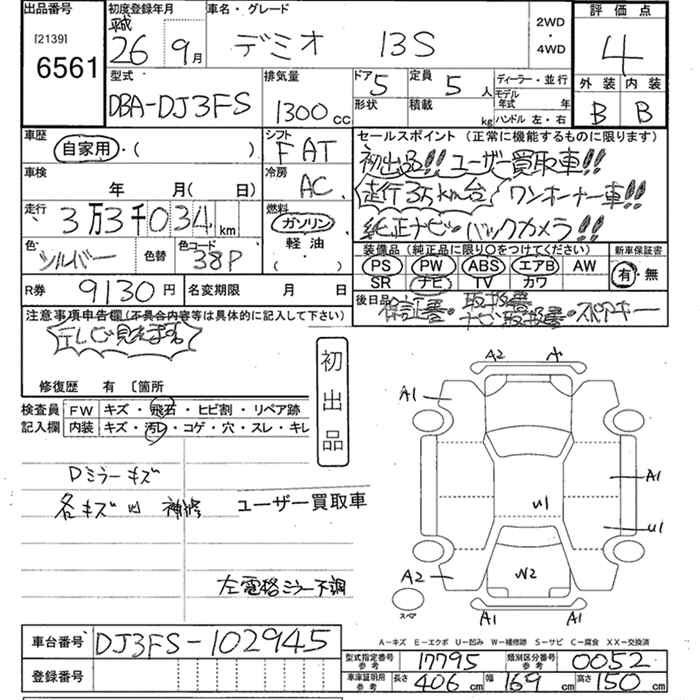 出品番号
[2139]
6561
初度登録年月
平成
26年9月
車名・グレード
デミオ 13S
2WD
・
4WD
評価点
4
外装 内装
B B
型式
DBA-DJ3FS
排気量
1300cc
ドア 5
形状
定員 5人
積載 kg
ディーラー・並行
モデル年式 年
ハンドル 左・右
車歴
自家用・( )
シフト
FAT
セールスポイント (正常に機能するものに限ります)
初出品!! ユーザー買取車!!
走行3万km台 ワンオーナー車!!
純正ナビ・バックカメラ!!
車検
年 月( 日)
冷房
AC
走行
3万3千034km
燃料
ガソリン
軽油
( )
色
シルバー
色替
色コード
38P
装備品 (純正品に限り〇をつけてください)
PS PW ABS エアB AW
SR ナビ TV カワ
新車保証書
有・無
R券 9130円
名変期限 月 日
後日品
保証書・取扱書
ナビ取扱書・スペアキー
注意事項申告欄 (不具合内容等は具体的に記入して下さい)
テレビ見れません
修復歴 有 〔箇所
初出品
検査員
記入欄
FW キズ・飛石・ヒビ割・リペア跡
内装 キズ・汚レ・コゲ・穴・スレ・キレ
Dミラーキズ
各キズ 補修
ユーザー買取車
左電格ミラー不調
A2
A1
A1
U1
U1
W2
A2
A1
A1
スペア
A-キズ E-エクボ U-凹み W-補修跡 S-サビ C-腐食 XX-交換済
車台番号 DJ3FS-102945
登録番号
型式指定番号
参考
17795
類別区分番号
参考
0052
車庫証明用
参考
長さ 406cm 幅 169cm 高さ 150cm